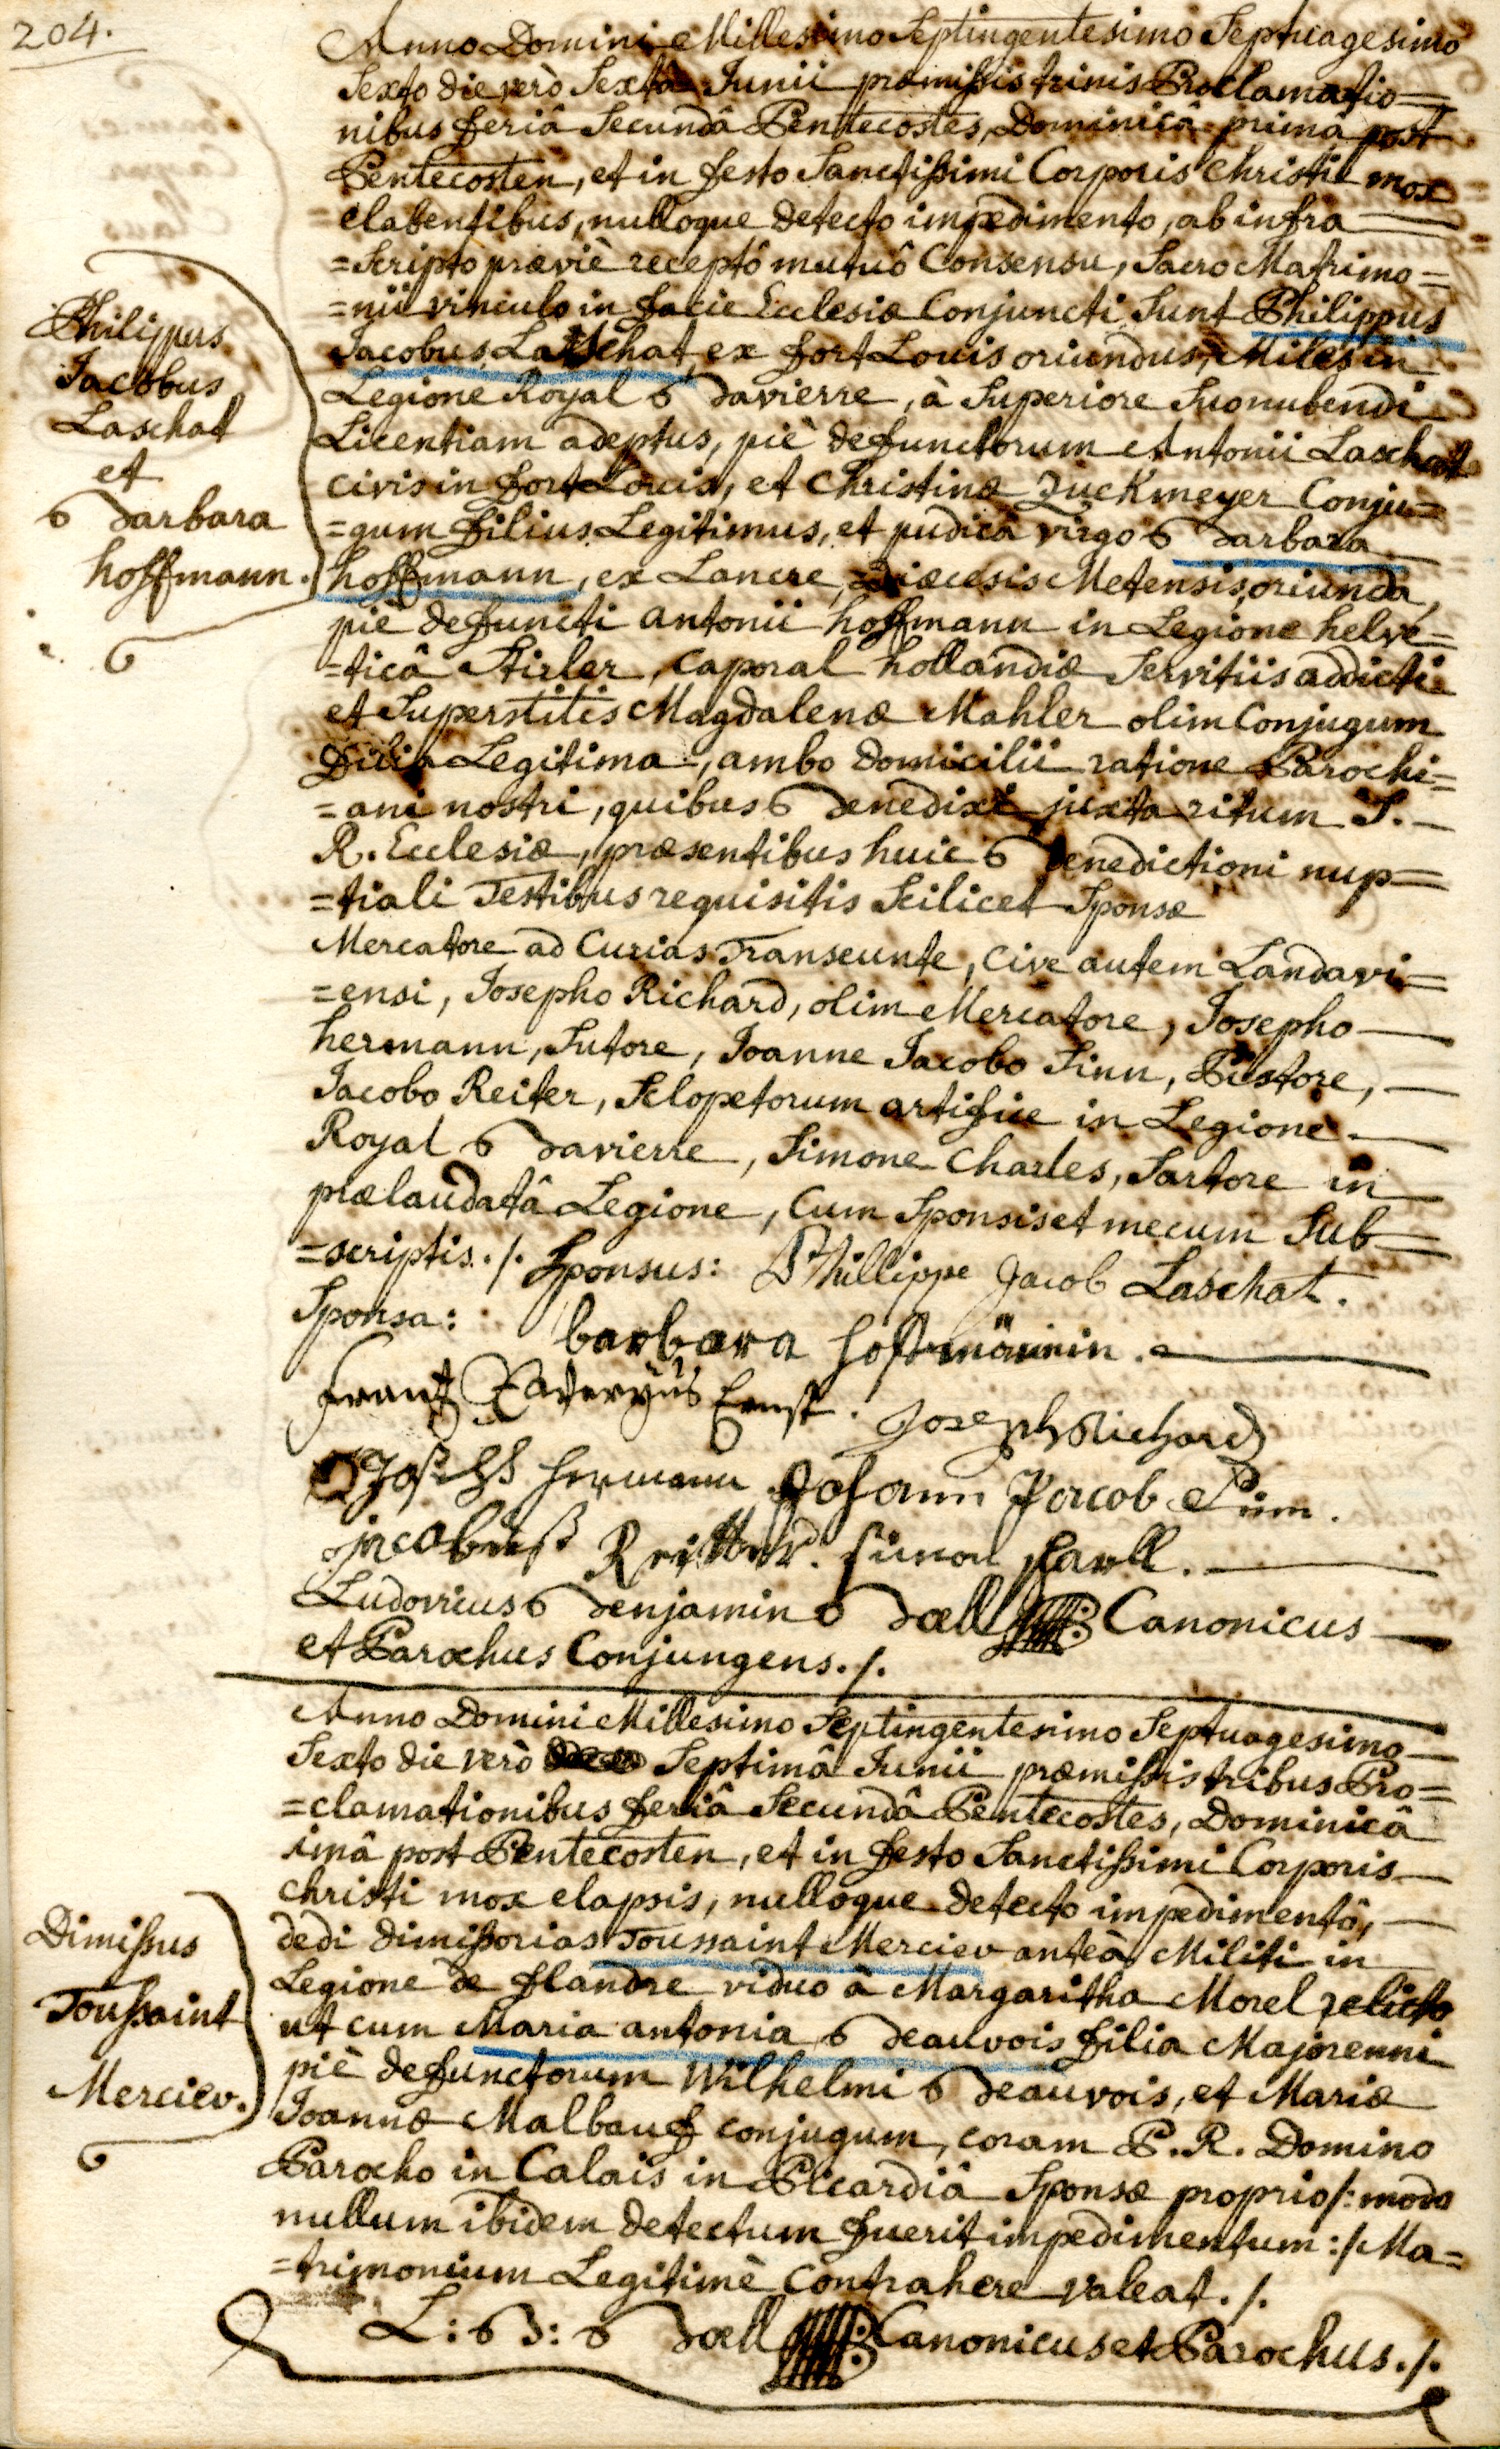 204.
Anno Domini Millesimo Septingentesimo Septuagesimo
Sexto die verò Sextâ Junii præmissis trinis Proclamatio=
nibus feriâ Secundâ Pentecostes, Dominicâ primâ post
Pentecosten, et in festo Sanctissimi Corporis Christi mox
elabentibus, nulloque detecto impedimento, ab infra
=Scripto præviè receptô mutuô Consensu, Sacro Matrimo=
=nii vinculo in facie Ecclesiæ Conjuncti Sunt Philippus
Jacobus Laschat, ex fort Louis oriundus, Miles in
Legione Royal Bavierre, à Superiore Suo nubendi
Licentiam adeptus, piè defunctorum Antonii Laschat
civis in fort Louis, et Christinæ Zuckmeyer Conju=
=gum filius Legitimus, et pudica virgo Barbara
hoffmann, ex Lancre, Diœcesis Metensis, oriunda,
piè defuncti antonii hoffmann in Legione helve=
=ticâ Stirler, Caporal hollandiæ Servitiis addicti
et Superstitis Magdalenæ Mahler olim Conjugum
filia Legitima, ambo domicilii ratione Parochi=
=ani nostri, quibus Benedixi juxta ritum S.
R. Ecclesiæ, præsentibus huic Benedictioni nup=
=tiali Testibus requisitis Scilicet Sponsæ
Mercatore ad Curias Transeunte, Cive autem Landavi=
=ensi, Josepho Richard, olim Mercatore, Josepho
hermann, Sutore, Joanne Jacobo Sinn, Pistore,
Jacobo Reiter, Sclopetorum artifice in Legione
Royal Bavierre, Simone Charles, Sartore in
prælaudatâ Legione, Cum Sponsis et mecum Sub=
=scriptis ./. Sponsus: Phillippe Jacob Laschat.
Sponsa: barbara hoffmännin.
Frantz Xaveryus Ernst. Joseph Richard
Joseph Hermann Johann Jacob Sinn.
jacobus Reitter. Simon
Ludovicus Benjamin Boell Canonicus
et Parochus Conjungens ./.
Anno Domini Millesimo Septingentesimo Septuagesimo
Sexto die verò Septimâ Junii præmissis tribus Pro=
=clamationibus feriâ Secundâ Pentecostes, Dominicâ
imâ post Pentecosten, et in festo Sanctissimi Corporis
Christi mox elapsis, nulloque detecto impedimentô,
dedi dimissorias Toussaint Merciev anteà Militi in
Legione de flandre viduo à Margaritha Morel relicto
ut cum Maria antonia Beauvois filia Majorenni
piè defunctorum Wilhelmi Beauvois, et Mariæ
Joannæ Malbauf conjugum, coram P. R. Domino
Parocho in Calais in Picardiâ Sponsæ proprio /: modo
nullum ibidem detectum fuerit impedimentum :/ Ma=
=trimonium Legitimè contrahere valeat ./.
L: B: Boell Canonicus et Parochus ./.
Philippus
Jacobus
Laschat
et
Barbara
hoffmann.
Dimissus
Toussaint
Merciev.